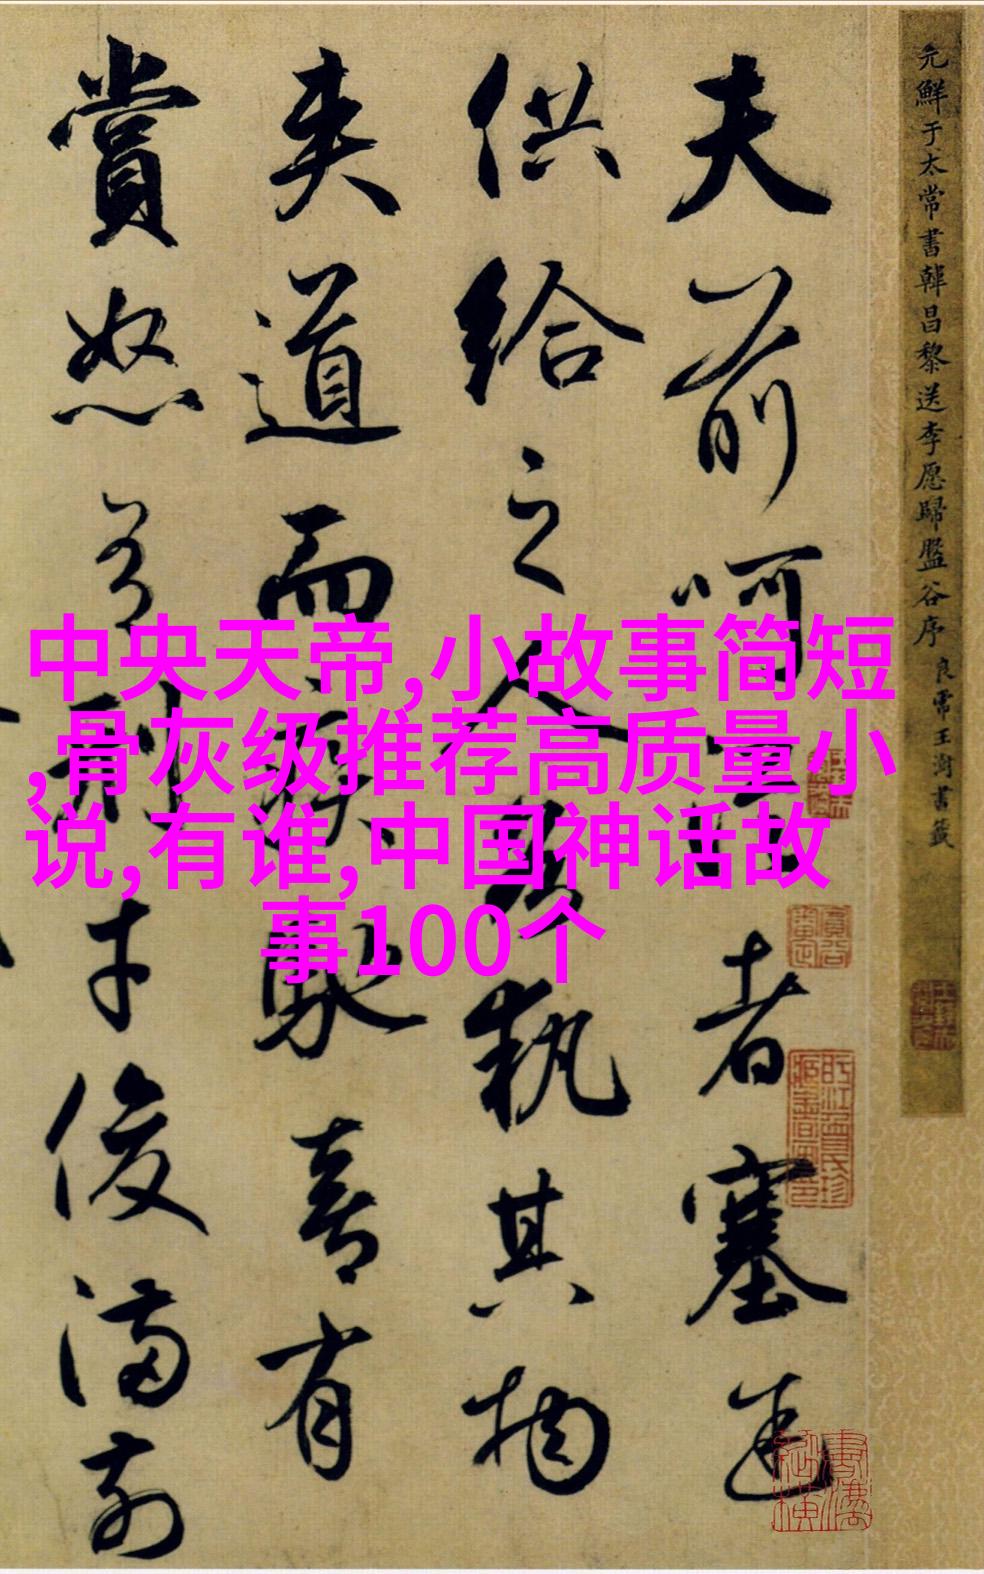 元鮮于太常書韓昌黎送李愿歸盤谷序
良常王澍書籤
夫前呵從者塞途
供給之人各執其物
夾道而疾馳喜有
賞怒有刑才俊滿前
中央天帝,小故事简短
,骨灰级推荐高质量小
说,有谁,中国神话故
事100个